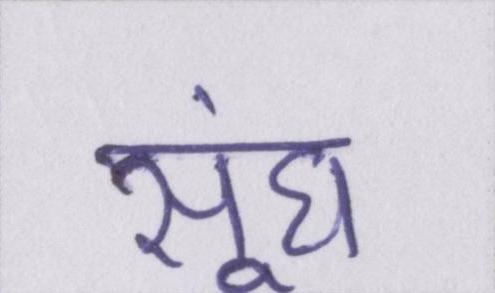 सूंघ